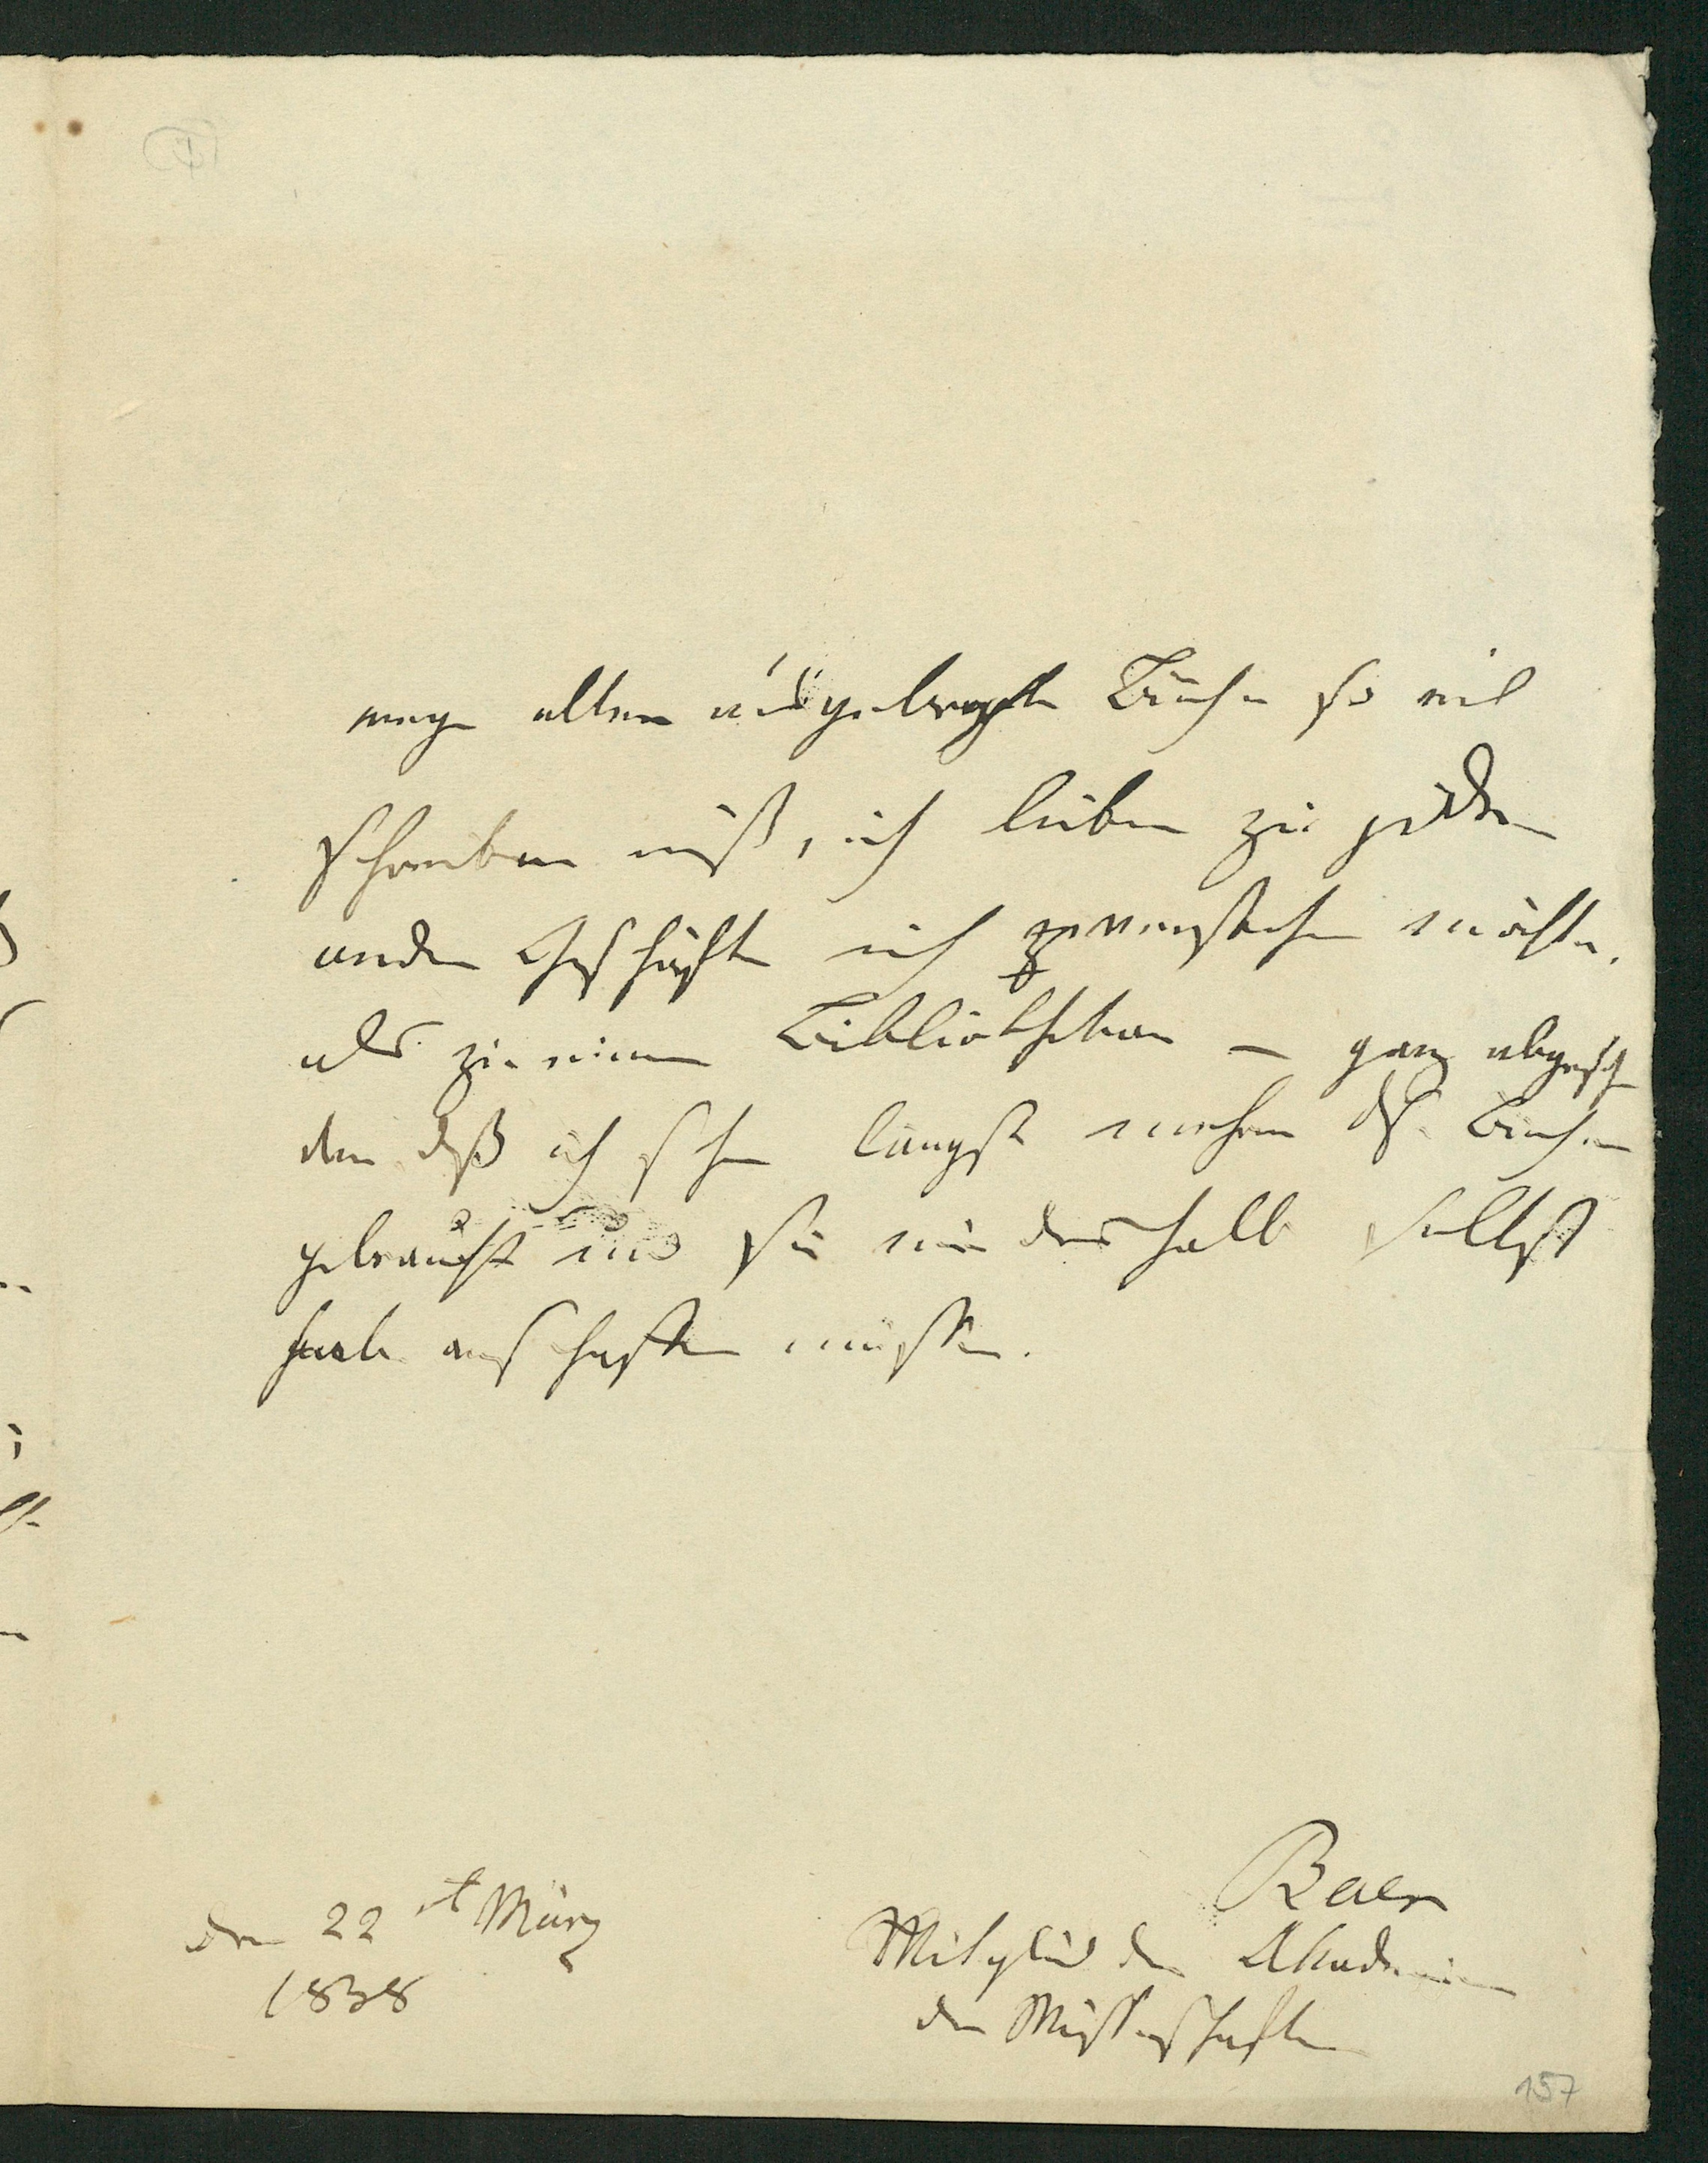 wegen alten ausgelegten Bücher so viel
schreiben muß, ich lieber zu jedem
andern Geschäfte mich verstehen möchte,
als zu einem Bibliothekar – ganz abgesehen
davon daß ich schon längst mehrere dieser Bücher
gebraucht und sie mir deshalb selbst
habe anschaffen müssen.
Baer
Mitglied der Akademie
der Wissenschaften
den 22st März
1838
157